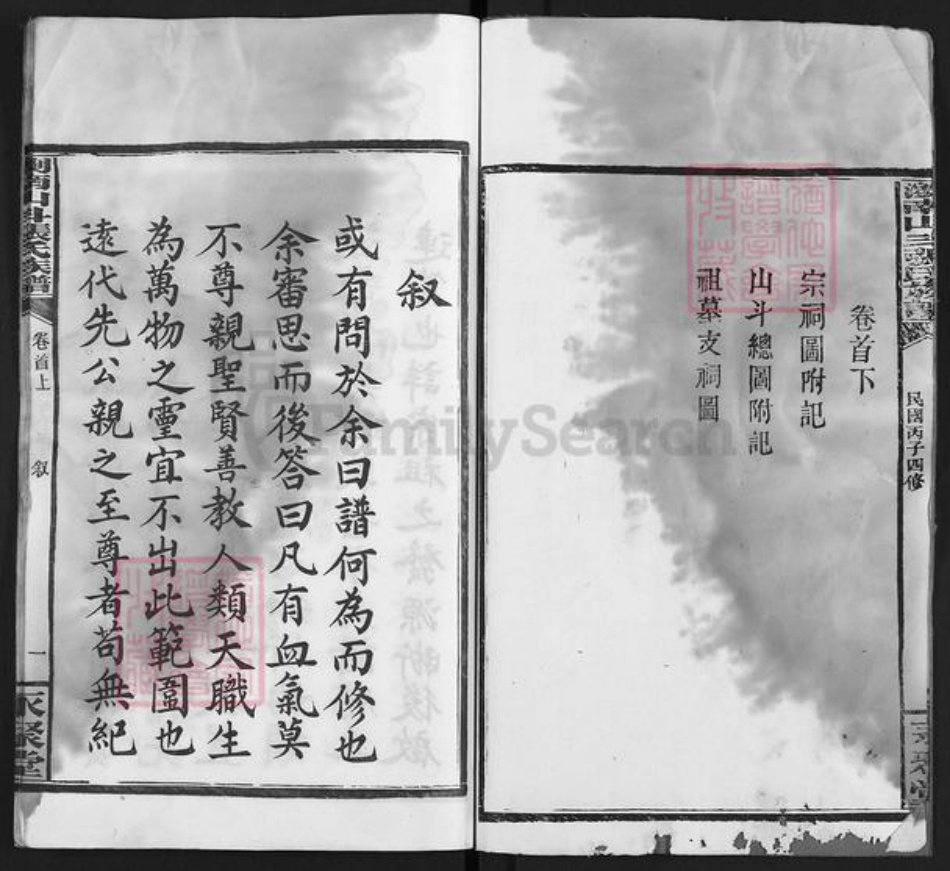 卷首下
宗祠圖附記
山斗總圖附記
祖墓支祠圖
民國丙子四修
叙
或有問於余曰譜何為而修也
余審思而後答曰凡有血氣莫
不尊親聖賢善教人類天職生
為萬物之靈宜不出此範圍也
遠代先公親之至尊者苟無紀
山斗張氏族譜
卷首上
叙
一
FamilySearch